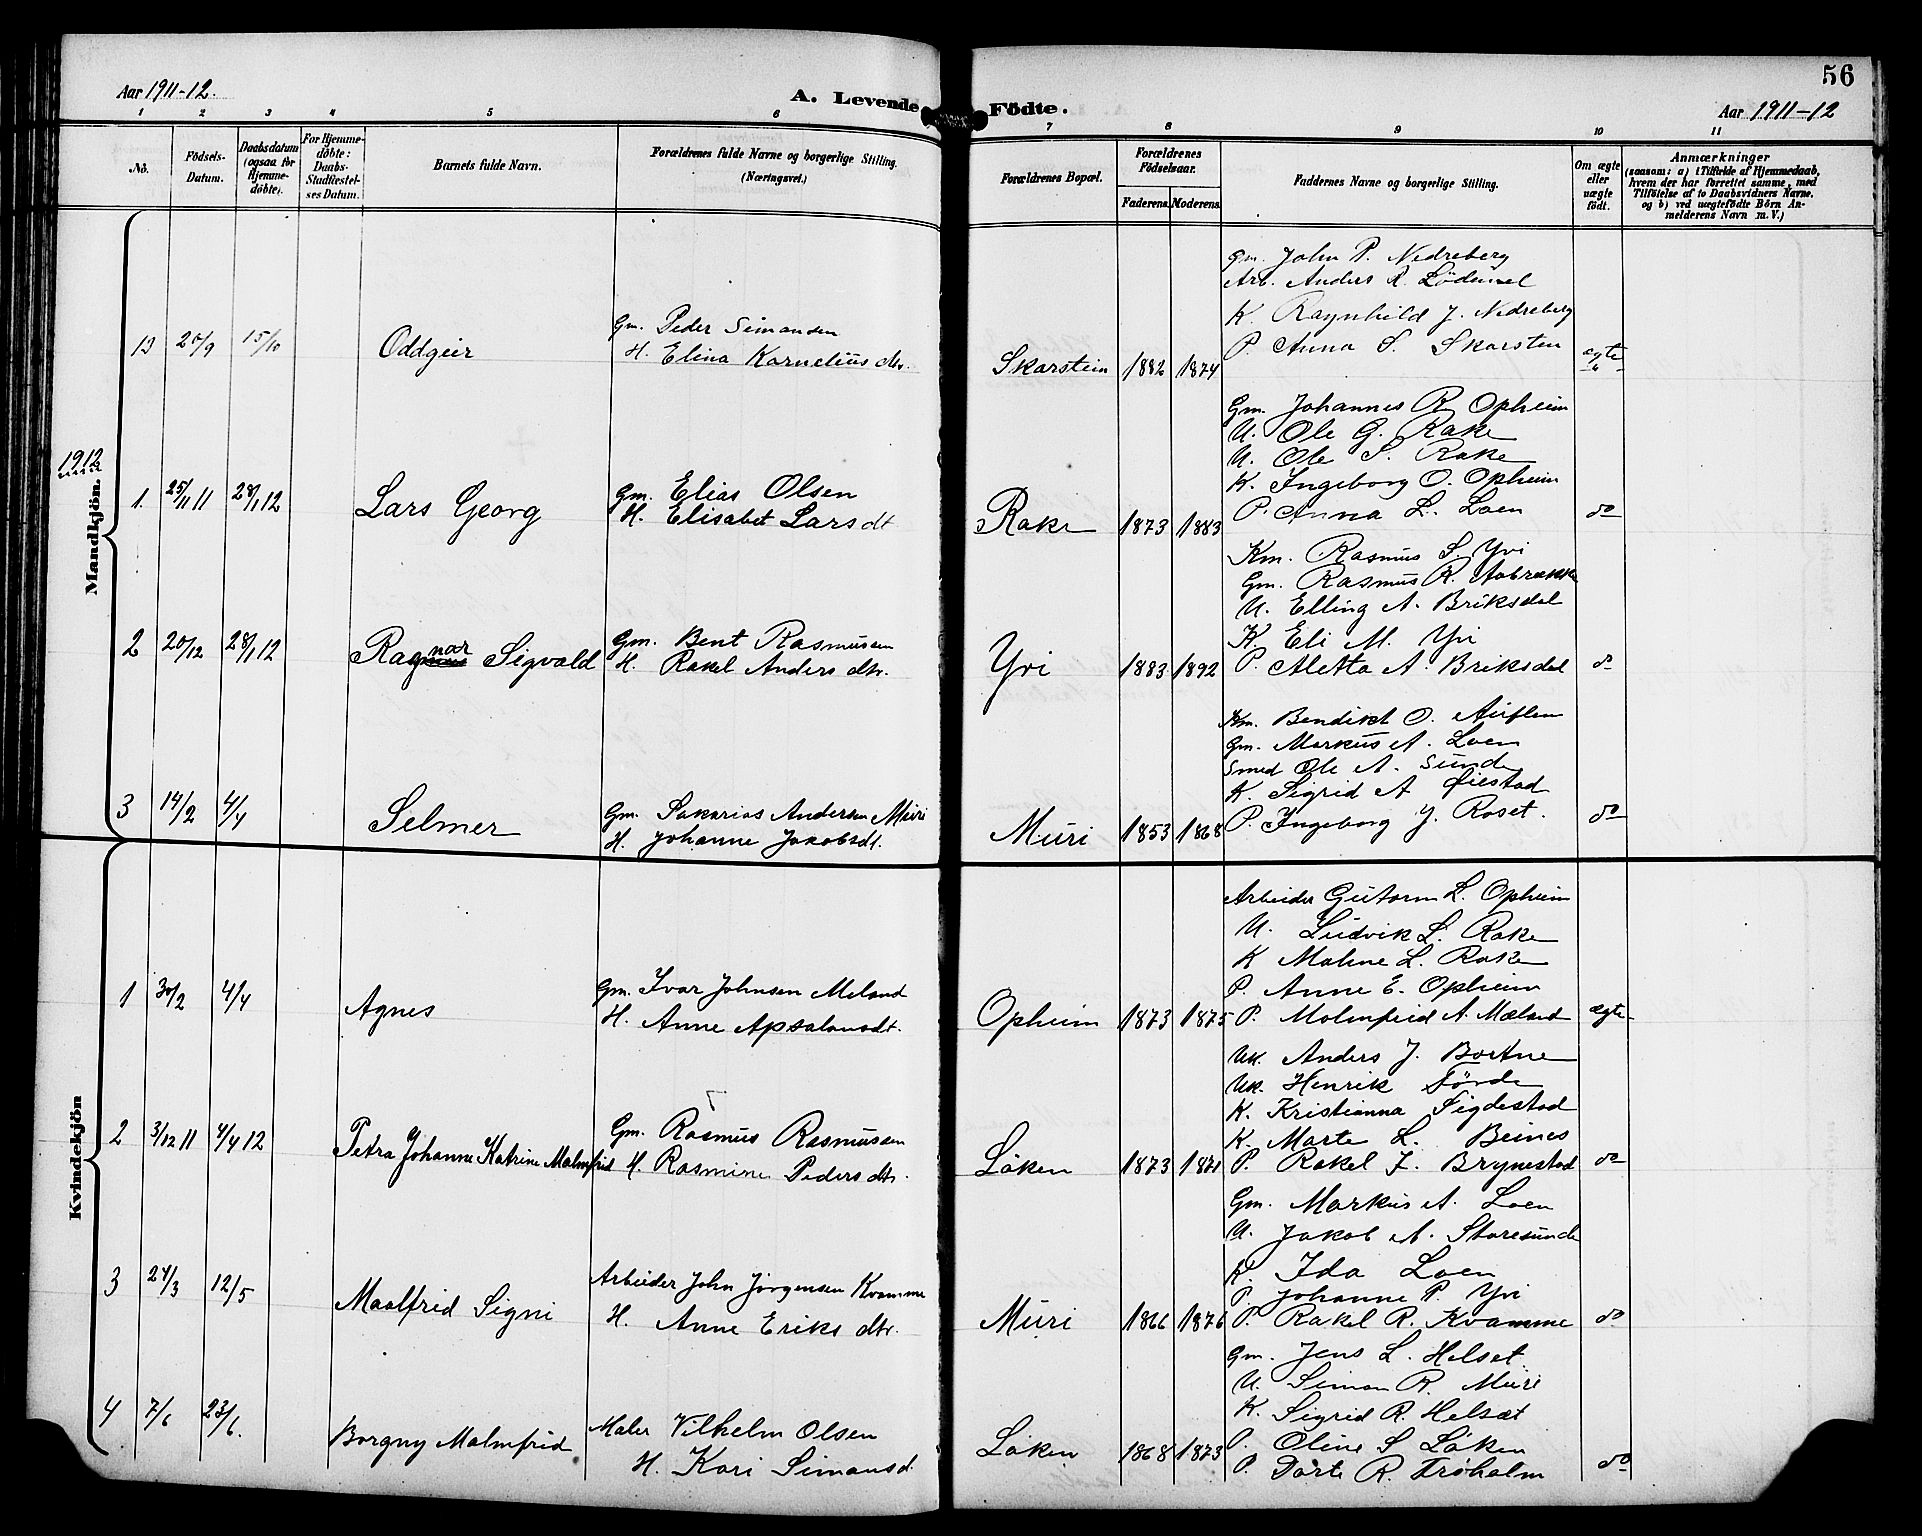 56
Aar 1911-12.
A. Levende Födte.
Aar 1911-12
1 2 3 4 5 6 7 8 9 10 11
No.
Födsels-Datum.
Daabsdatum (ogsaa for Hjemme-döbte).
For Hjemme-döbte: Daabs-Stadfæstel-ses Datum.
Barnets fulde Navn.
Forældrenes fulde Navne og borgerlige Stilling. (Næringsvei.)
Forældrenes Bopæl.
Forældrenes Födselsaar.
Faderens. Moderens.
Faddernes Navne og borgerlige Stilling.
Om ægte eller uægte födt.
Anmærkninger
(saasom: a) i Tilfælde af Hjemmedaab, hvem der har forrettet samme, med Tilföielse af to Daabsvidners Navne, og b) ved uægtefödte Börn An-melderens Navn m. V.)
Mandkjön.
gm. John P. Nedreberg
Arb. Anders R. Lödemel
K. Ragnhild J. Nedreberg
P. Anna S. Skarsten
13 20/9 15/10 Oddgeir
Gm. Peder Simonsen
H. Elina Kornelius dtr.
Skarstein 1882 1874 ægte
1912
Gm. Johannes R. Opheim
U. Ole G. Rake
U. Ole S. Rake
K. Ingeborg O. Opheim
P. Anna L. Loen
1. 25/11 11 28/1 12 Lars Georg
Gm. Elias Olsen
H. Elisabet Lars dt
Rake 1873 1883 do
Km. Rasmus S. Yri
Gm. Rasmus R. Aabrekke
U. Elling A. Briksdal
K. Eli M. Yri
P. Aletta A. Briksdal
2 20/12 28/1 12 Ragnar Sigvald
Gm. Bent Rasmusen
H. Rakel Anders dtr.
Yri 1883 1892 do
Km. Bendikt O. Auflem
Gm. Markus A. Loen
Smed Ole A. Sunde
K. Sigrid A Øiestad
P. Ingeborg J. Roset.
3 14/2 4/4 Selmer
Gm. Sakarias Andersen Muri
H. Johanne Jakobsdt.
Muri 1853 1868 do
Kvindekjön
Arbeider Gutorm L. Opheim
U. Ludvik L. Rake
K Maline L. Rake
P. Anne E. Opheim
P. Malmfrid A. Mæland
1 30/2 4/4 Agnes
Gm. Ivar Johnsen Meland
H. Anne Apsalonsdt.
Opheim 1873 1875 ægte
Uk. Anders J. Bortne
Uk. Henrik Förde
K. Kristianna Sigdestad
K. Marte L. Beines
P. Rakel J. Brynestad
2 3/12 11 4/4 12 Petra Johanne Katrine Malmfrid
Gm. Rasmus Rasmussen
H. Rasmine Peders dtr.
Löken 1873 1871 do
Gm. Markus A. Loen
U. Jakob A. Storesunde
K. Ida Loen
P. Johanne P. Yri
P. Rakel R. Kvamme
3 24/3 12/5 Maalfrid Signi
Arbeider John Jörgensen Kvamme
H. Anne Eriks dtr.
Muri 1866 1876 do
Gm. Jens L. Helset.
U. Simon R. Muri
K. Sigrid R. Helset
P. Oline S Löken
P. Dorte R. Tröholm
4 7/6 23/6. Borgny Malmfrid
Maler Vilhelm Olsen
H. Kari Simansd.
Löken 1868 1873 do